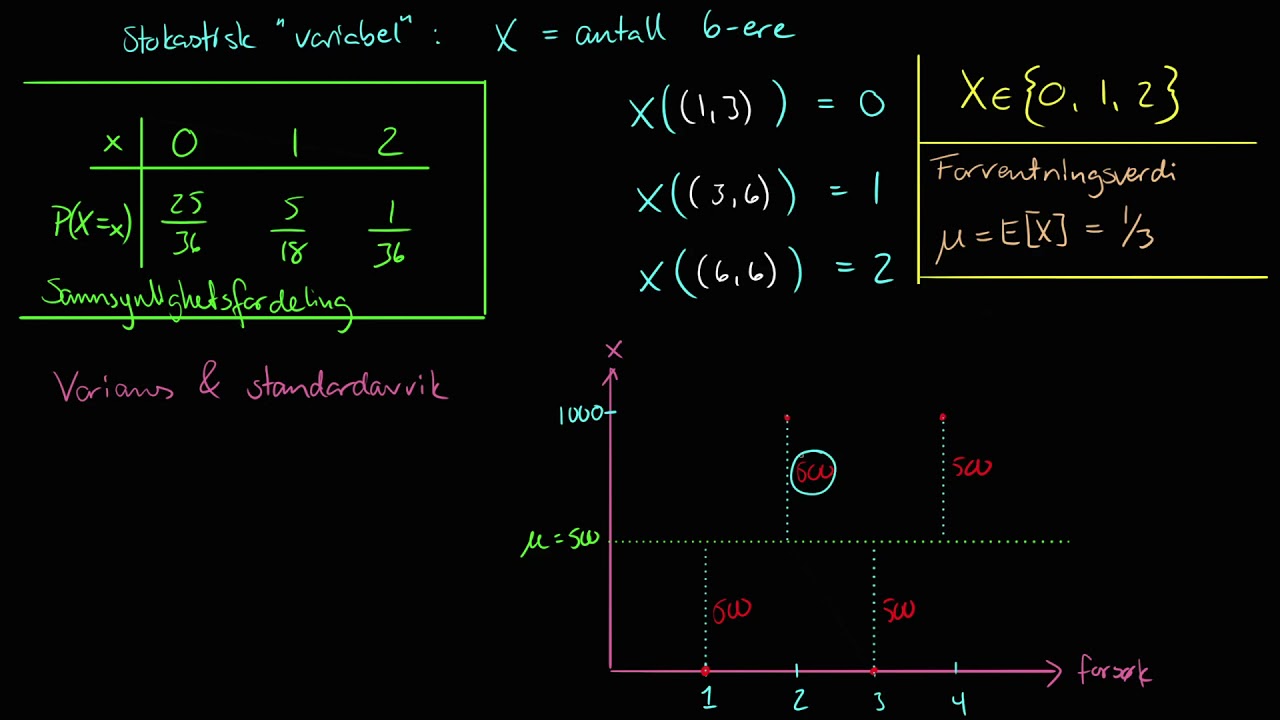 Stokastisk "variabel": X = antall 6-ere
x 0 1 2
P(X=x) 25/36 5/18 1/36
Sannsynlighetsfordeling
X((1,3)) = 0
X((3,6)) = 1
X((6,6)) = 2
X∈{0, 1, 2}
Forventningsverdi
μ = E[X] = 1/3
Varians & standardavvik
x
1000
500 500
μ = 500
500 500
1 2 3 4
forsøk